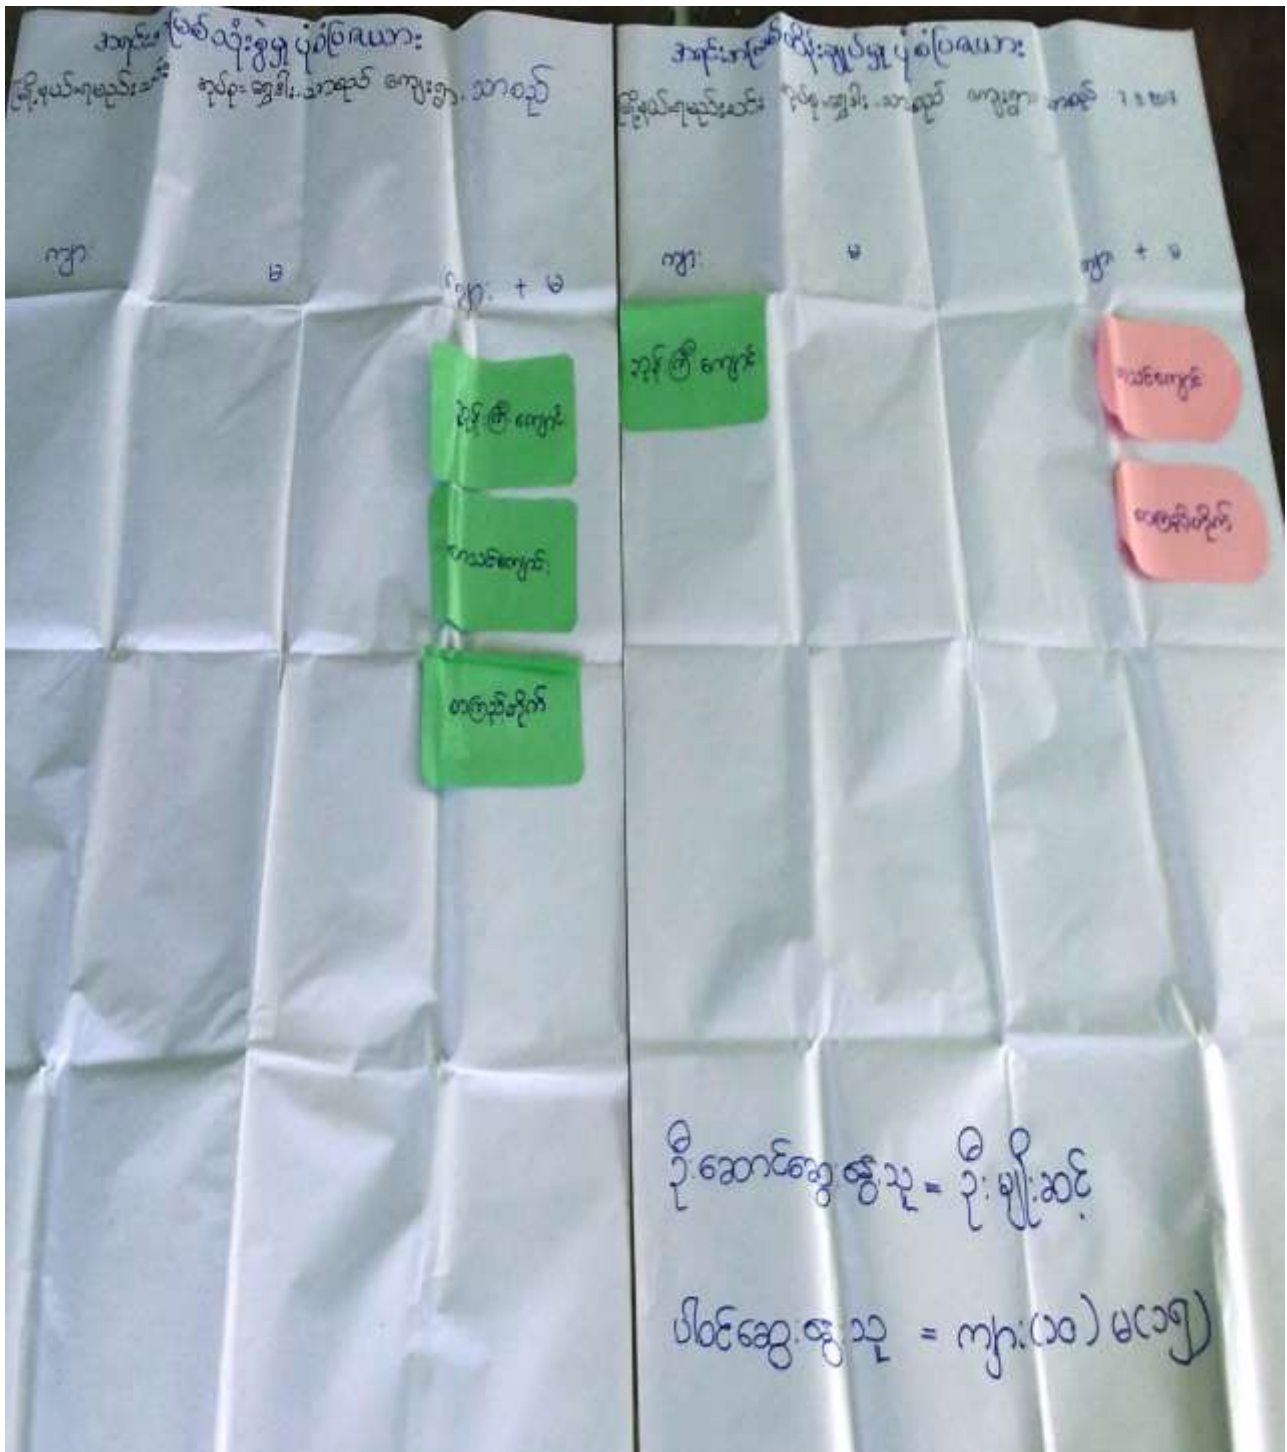 အရင်းအမြစ် သုံးစွဲမှု ပုံစံပြဇယား
မြို့နယ်-ရမည်းသင်း အုပ်စု-ရွှေဒါး-သာစည် ကျေးရွာ၊ သာစည်
ကျား
မ
ကျား + မ
ဘုန်းကြီးကျောင်း
စာသင်ကျောင်း
စာကြည့်တိုက်
အရင်းအမြစ်ထိန်းချုပ်မှု ပုံစံပြဇယား
မြို့နယ်-ရမည်းသင်း အုပ်စု-ရွှေဒါး-သာစည် ကျေးရွာ သာစည်
ကျား
မ
ကျား + မ
ဘုန်းကြီးကျောင်း
စာသင်ကျောင်း
စာကြည့်တိုက်
ဦးဆောင်ဆွေးနွေးသူ = ဦးမျိုးဆင့်
ပါဝင်ဆွေးနွေးသူ = ကျား(၁၀) မ(၁၅)